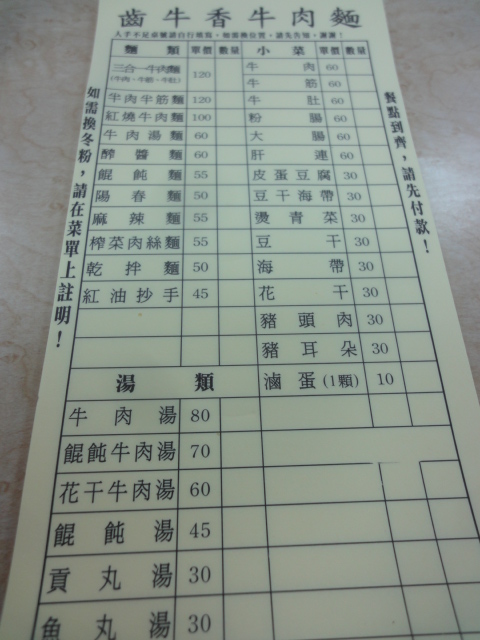 齒牛香牛肉麵
人手不足桌號請自行填寫，如需換位置，請先告知，謝謝！
麵類 單價 數量 小菜 單價 數量
三合一牛肉麵 120 牛肉 60
(牛肉、牛筋、牛肚) 牛筋 60
半肉半筋麵 120 牛肚 60
紅燒牛肉麵 100 粉腸 60
牛肉湯麵 60 大腸 60
醡醬麵 60 肝連 60
餛飩麵 55 皮蛋豆腐 30
陽春麵 50 豆干海帶 30
麻辣麵 55 燙青菜 30
榨菜肉絲麵 55 豆干 30
乾拌麵 50 海帶 30
紅油抄手 45 花干 30
豬頭肉 30
豬耳朵 30
湯類 滷蛋(1顆) 10
牛肉湯 80
餛飩牛肉湯 70
花干牛肉湯 60
餛飩湯 45
貢丸湯 30
魚丸湯 30
如需換冬粉，請在菜單上註明！
餐點到齊，請先付款！